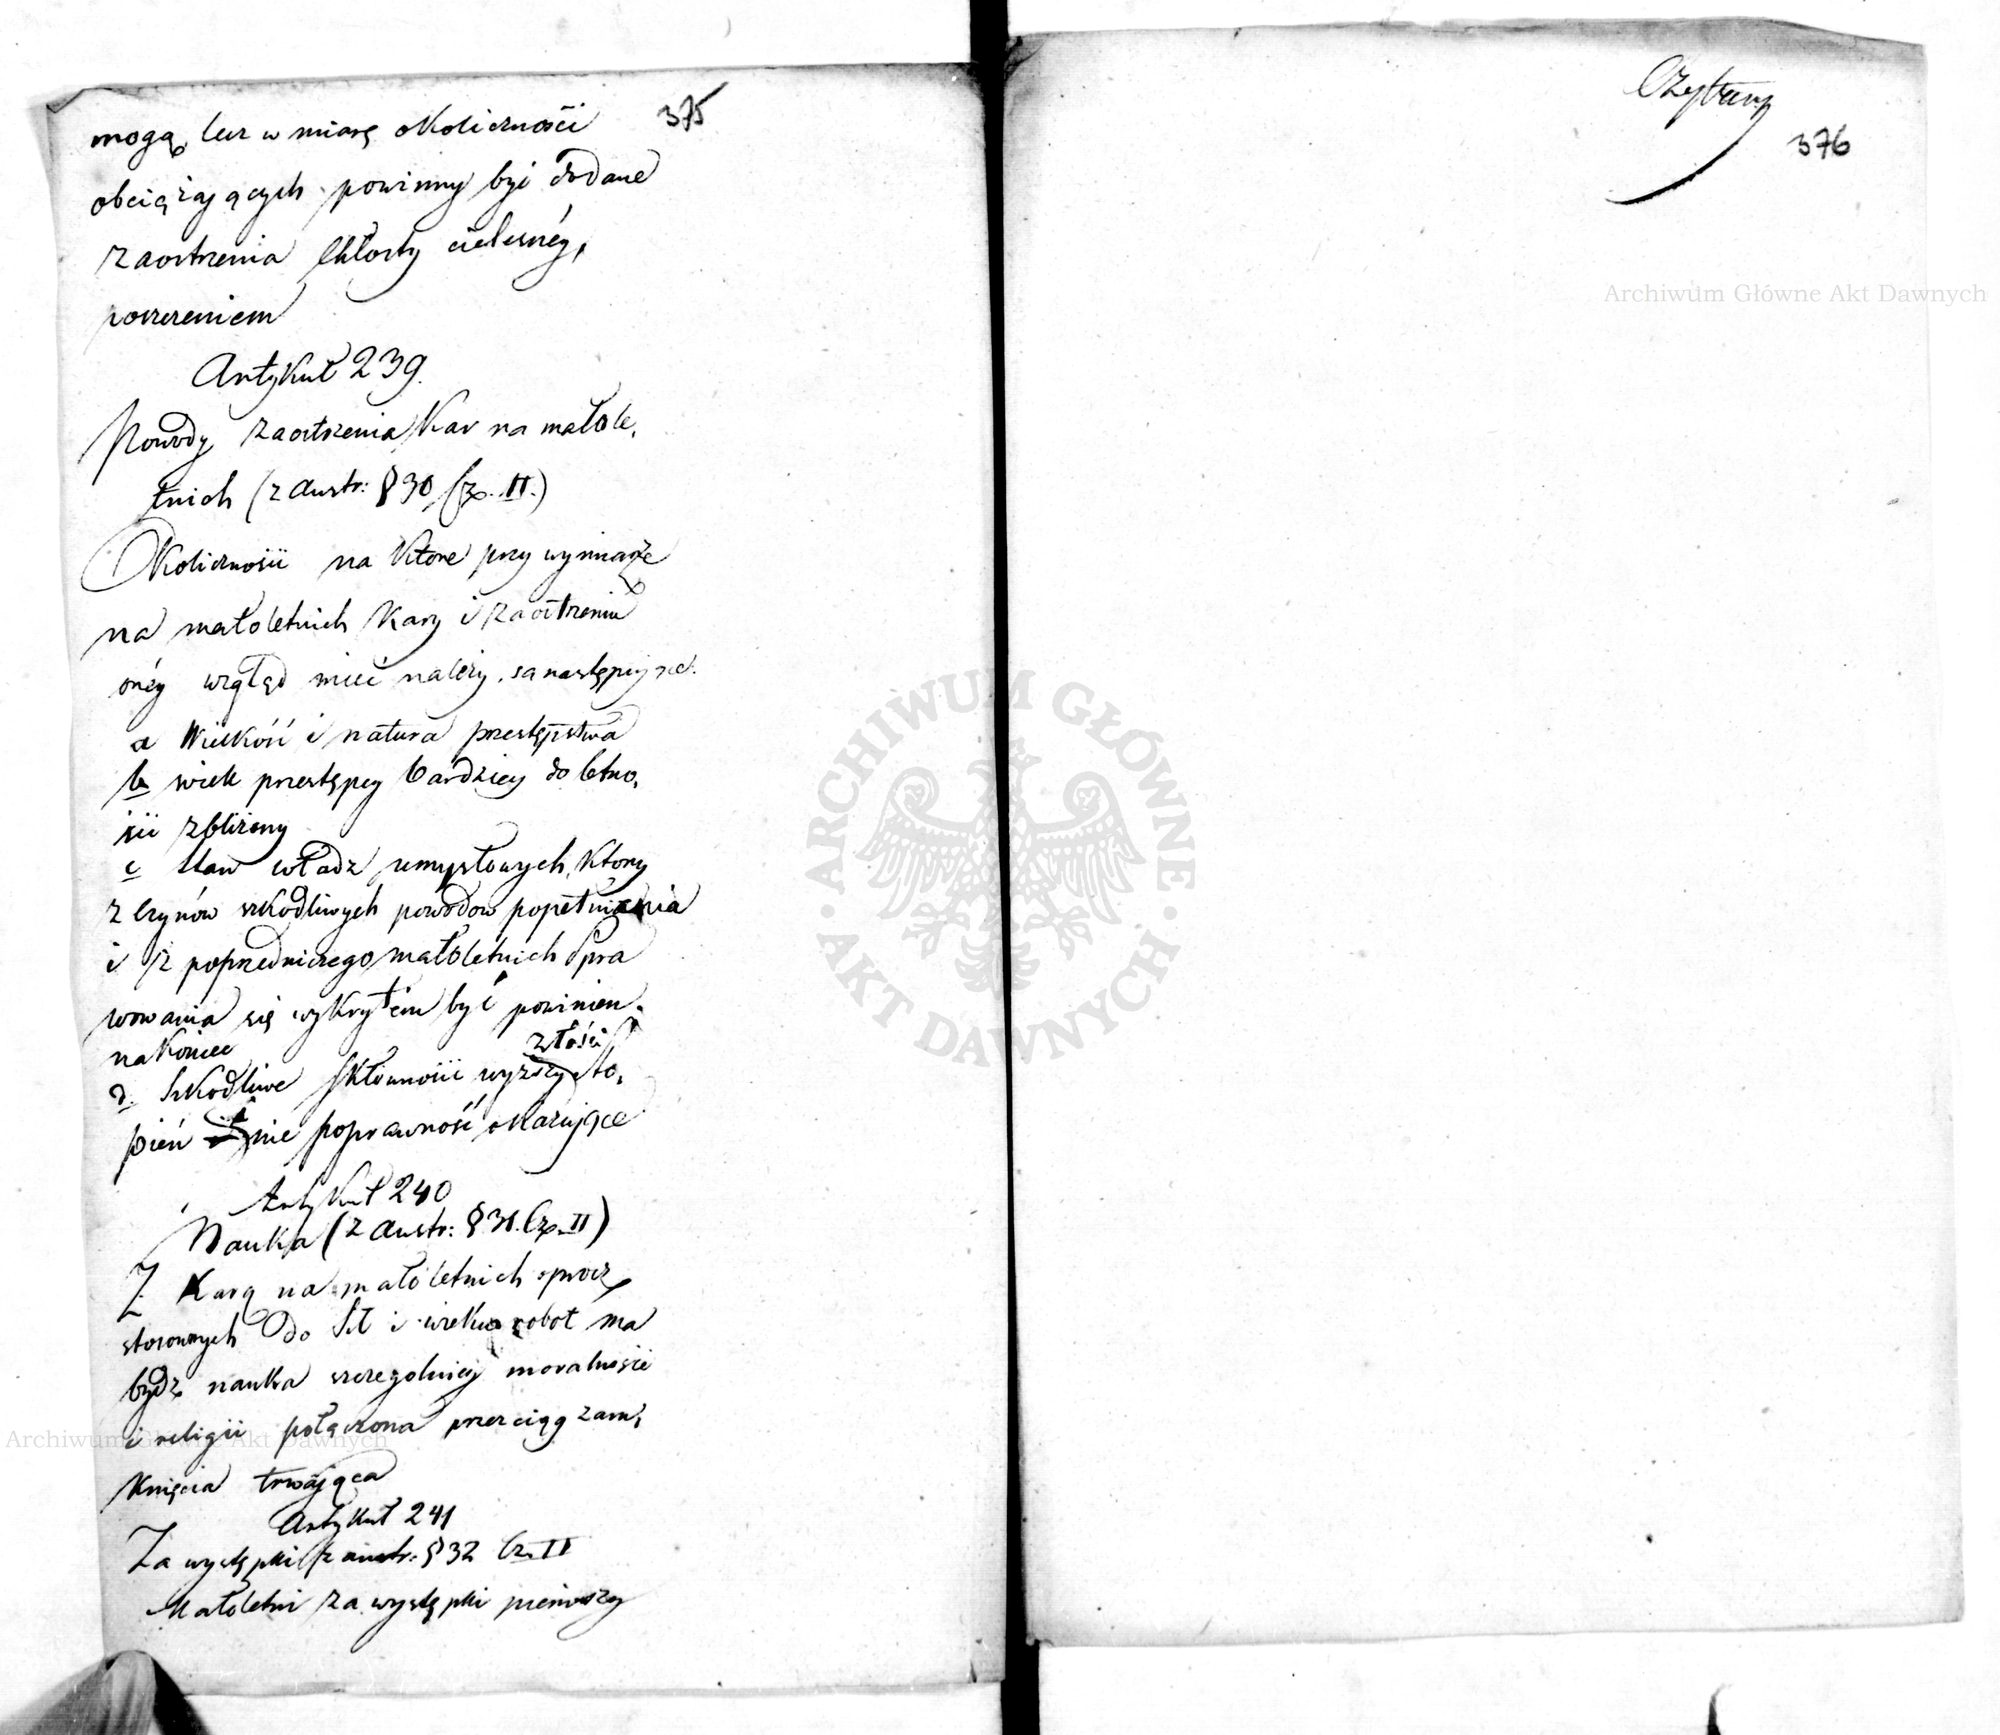 375
mogą, lecz w miarę okoliczności
obciążających powinny być dodane
zaostrzenia chłosty cielesnéy,
poszczeniem
Artykuł 239.
Powody zaostrzenia Kar na małole,
tnich (z Austr: § 30 Cz. II.)
Okoliczności na które przy wymiarze
na małoletnich Kary i zaostrzeniu
onéy wzgląd mieć należy, są następujące.
a Wielkość i natura przestępstwa
b wiek przestępcy bardziey do letno,
ści zbliżony
c stan władz umysłowych, który
z czynów szkodliwych powodow popełniania
i z poprzedniczego małoletnich Spra
wowania się wykrytém być powinien.
nakoniec
złości
d. Szkodliwe skłonności wyższy sto,
pień nie poprawność okazujące
Artykuł 240
Nauka (z Austr: § 31. Cz. II)
Z Karą na małoletnich oprocz
stosownych do Sił i wieku robot ma
bydź nauka szczegolniey moralności
i religii połączona przez ciąg zam,
knięcia trwająca
Artykuł 241
Za występki (z austr: § 32 Cz. II
Małoletni za występki pierwszy
Czytany
376
Archiwum Główne Akt Dawnych
ARCHIWUM GŁÓWNE • AKT DAWNYCH •
Archiwum Główne Akt Dawnych